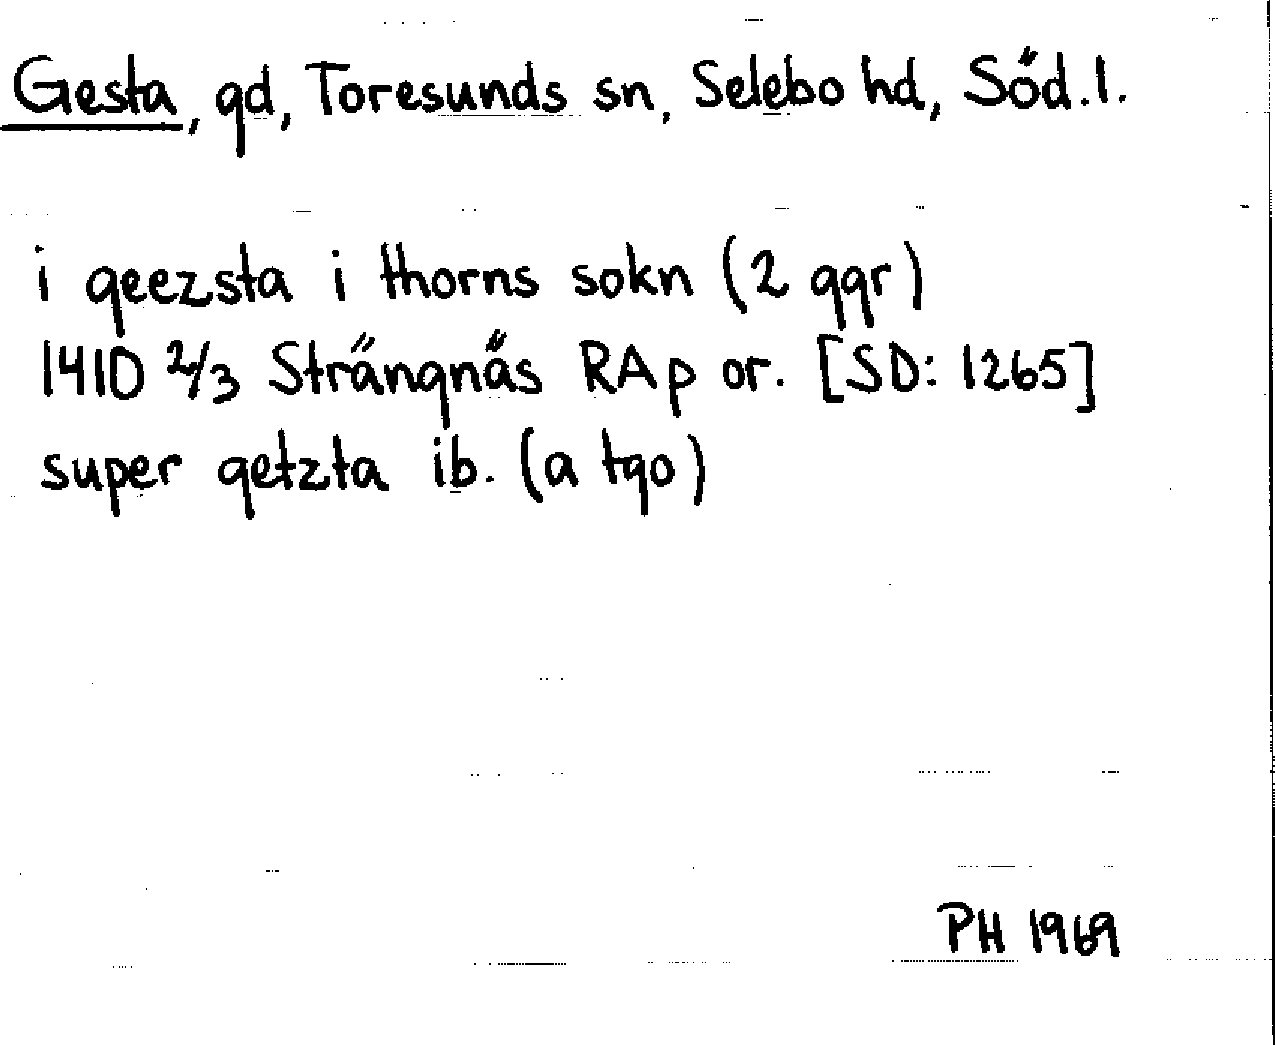 Gesta, gd, Toresunds sn, Selebo hd, Söd.l.
i geezsta i thorns sokn (2 ggr)
1410 2/3 Strängnäs RAp or. [SD: 1265]
super getzta ib. (a tgo)
PH 1969